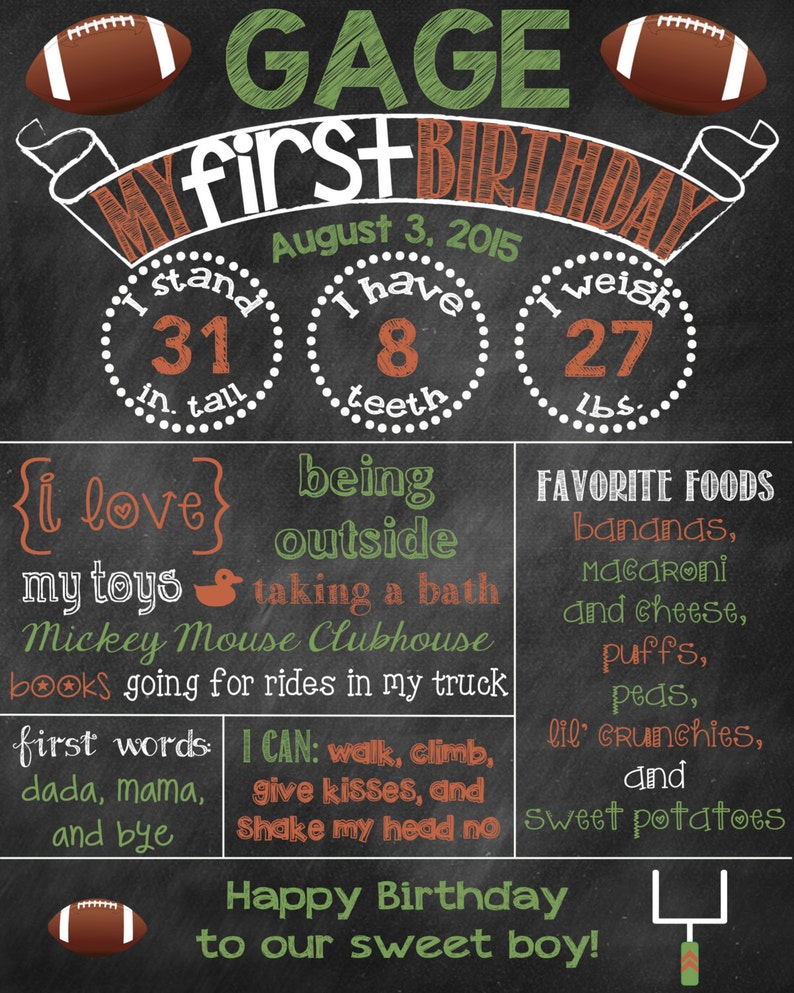 GAGE
MY first BIRTHDAY
August 3, 2015
I stand
31
in. tall
I have
8
teeth
I weigh
27
lbs.
{i love}
being
outside
my toys
taking a bath
Mickey Mouse Clubhouse
books going for rides in my truck
FAVORITE FOODS
bananas,
macaroni
and cheese,
puffs,
peas,
lil' crunchies,
and
sweet potatoes
first words:
dada, mama,
and bye
I CAN: walk, climb,
give kisses, and
shake my head no
Happy Birthday
to our sweet boy!